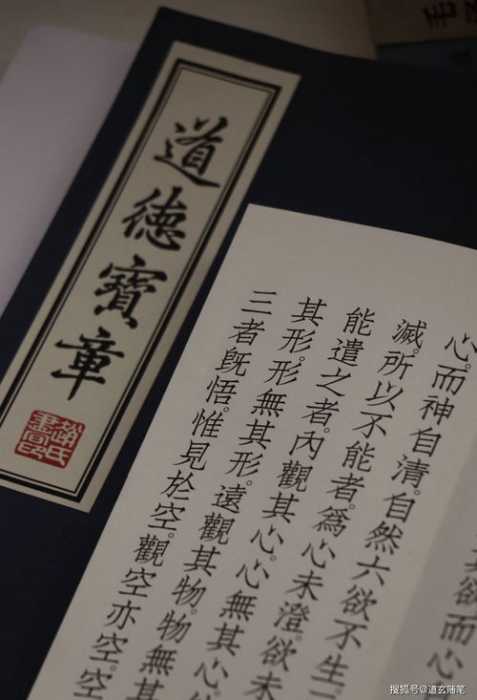 道德寶章
心。而神自清。自然六欲不生三
滅。所以不能者。爲心未澄。欲未
能遣之者。內觀其心。心無其心
其形。形無其形。遠觀其物。物無其
三者旣悟。惟見於空。觀空亦空。空
欲而心
搜狐号@道玄随笔